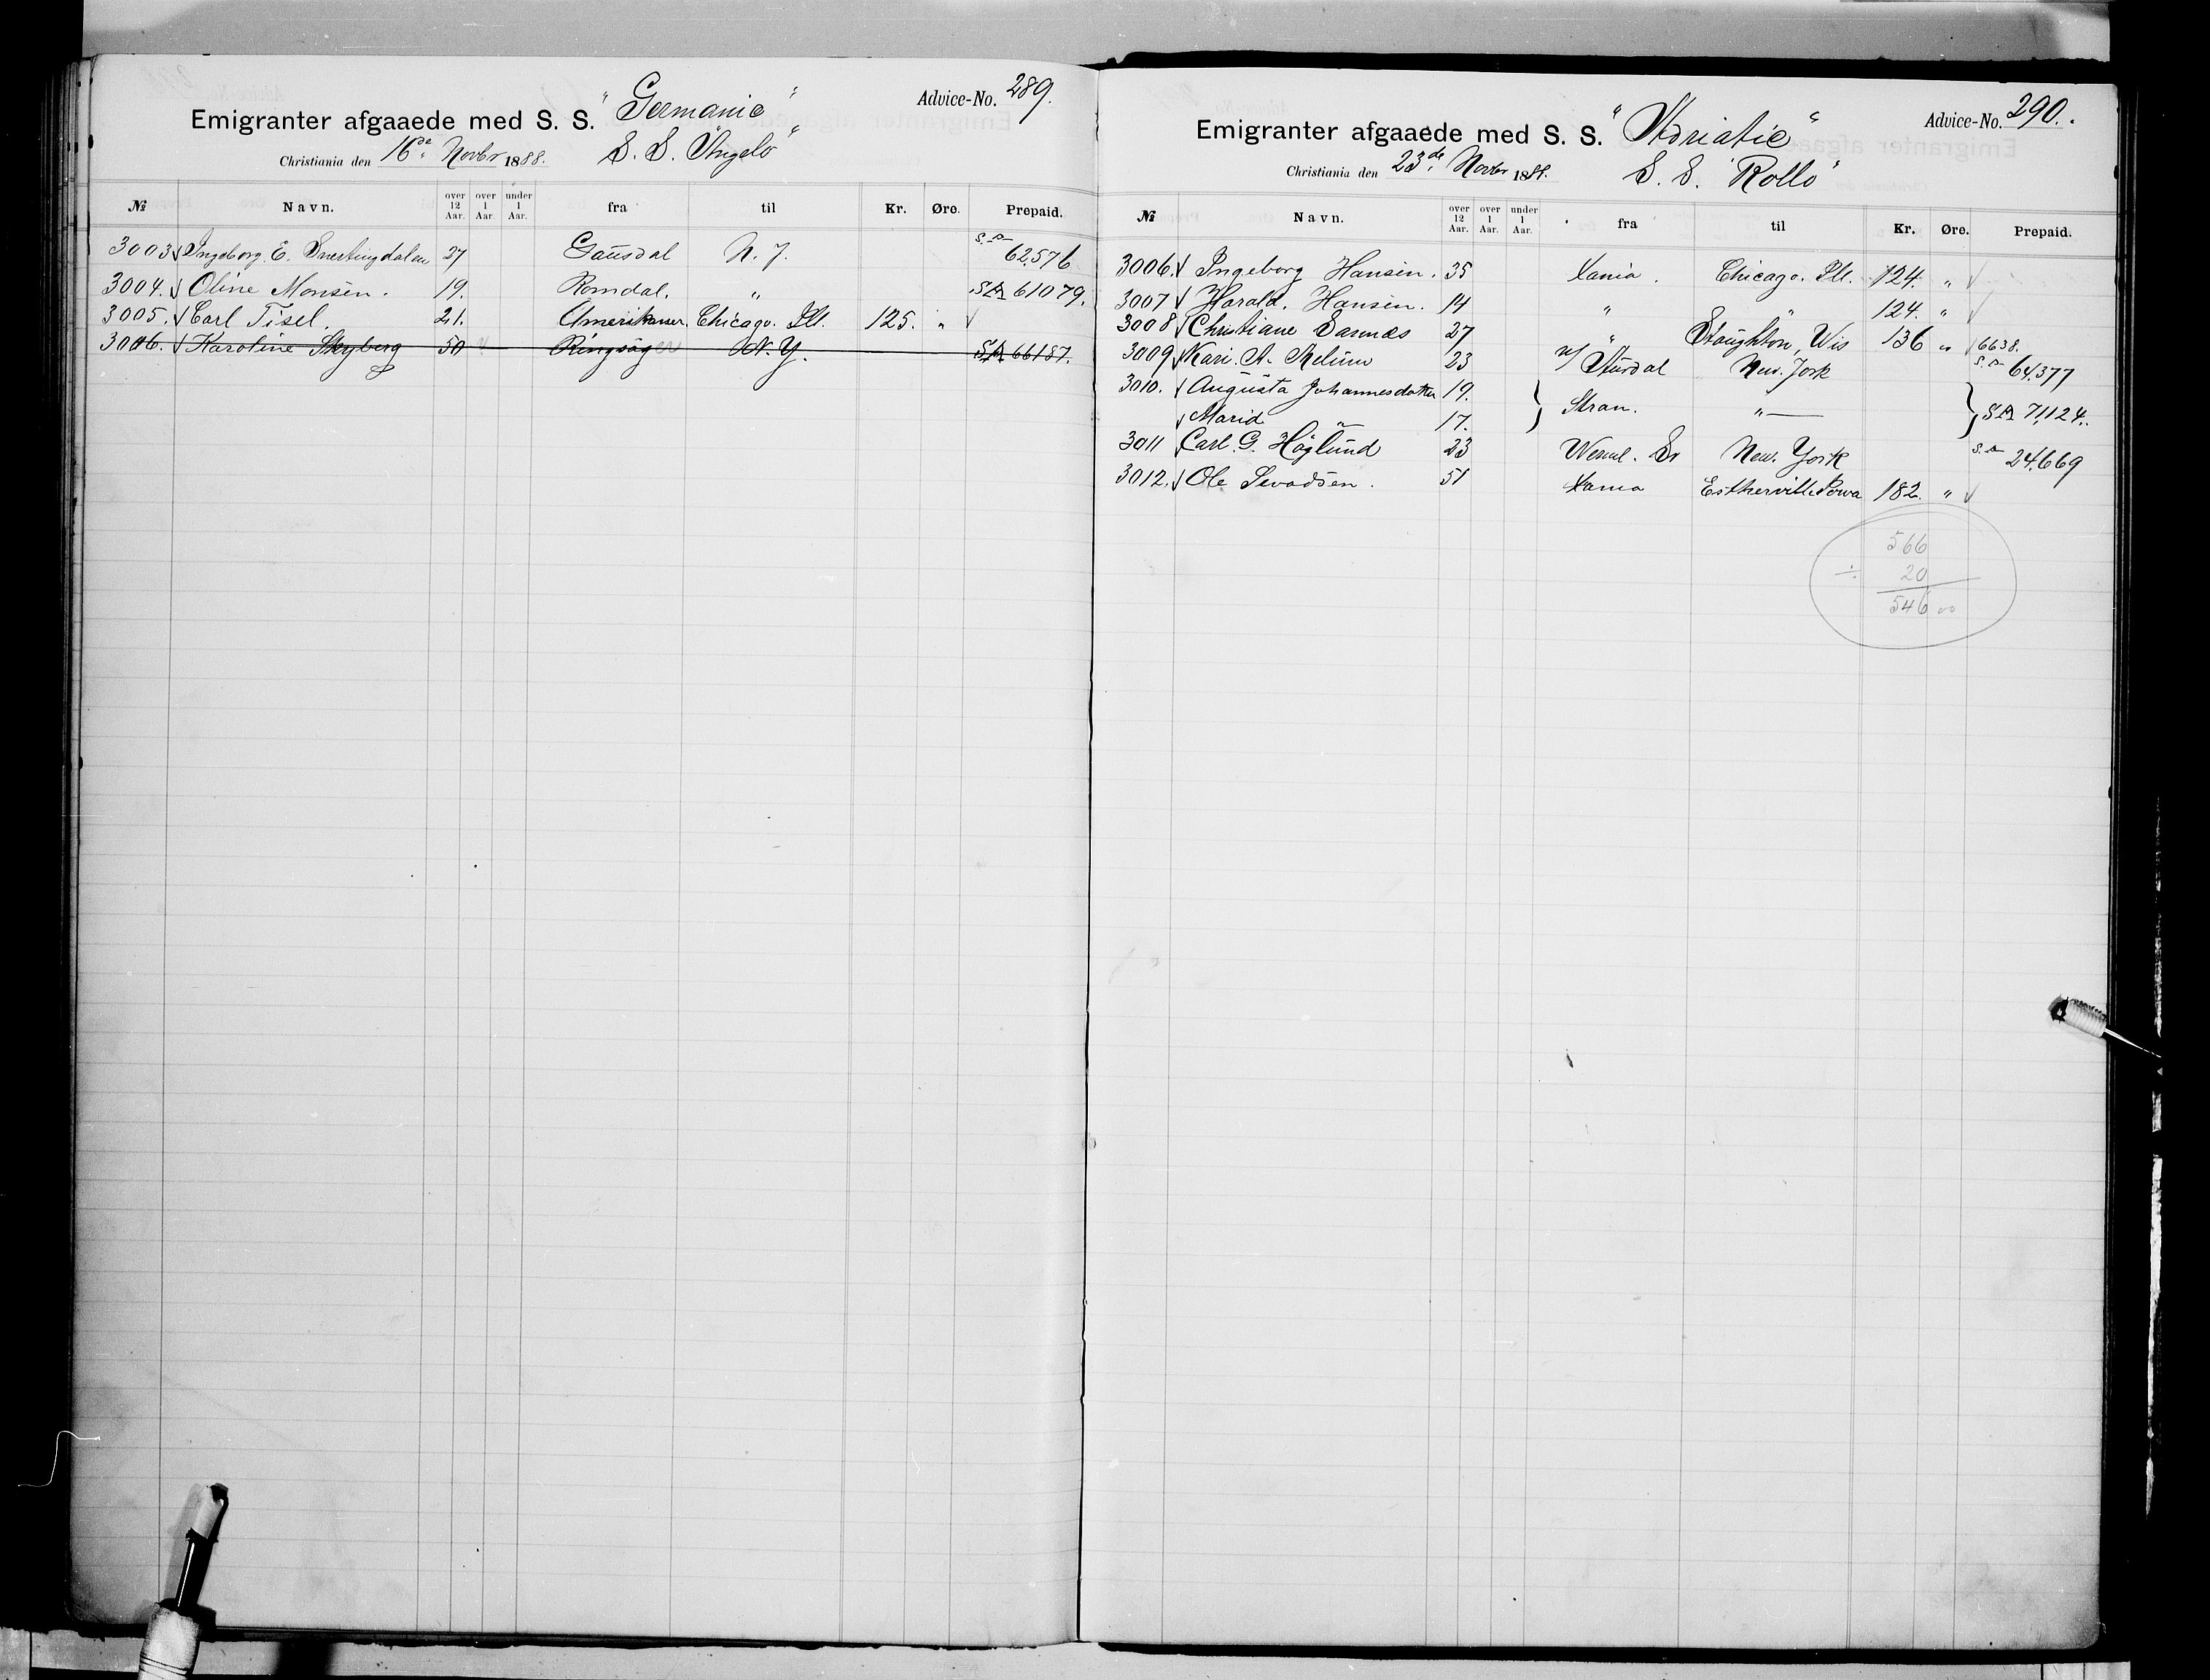 Advice-No. 289.
Emigranter afgaaede med S. S. "Germanic"
Christiania den 16de Novbr 1888. S. S. "Angelo"
№ Navn. over 12 Aar. over 1 Aar. under 1 Aar. fra til Kr. Øre. Prepaid.
3003 Ingeborg E. Snertingdalen 27 Gausdal N. J. 62576
3004. Oline Monsen. 19. Romdal. " 61079.
3005. Carl Tisel. 21. Amerikaner. Chicago. Ill. 125. "
3006. Karoline Skyberg 50 Ringsager N. Y. 66187.
Advice-No. 290.
Emigranter afgaaede med S. S. "Adriatic"
Christiania den 23de Novbr 1888. S. S. "Rollo"
№ Navn. over 12 Aar. over 1 Aar. under 1 Aar. fra til Kr. Øre. Prepaid.
3006. Ingeborg Hansen. 35 Xania. Chicago. Ill. 124. "
3007 Harald. Hansen. 14 " " 124. "
3008 Christiane 27 " Stoughton, Wis 136 " 6638.
3009 Kari. A. Melum 23 New. York 64377
3010. Augusta Johannesdotter 19. } Stran. "— } 71124.
Marid " 17.
3011 Carl. G. Höglund 23 Werml. Sv New. York 24669
3012. Ole 51 Xania Estherville Iowa 182. "
566
÷ 20
546 00